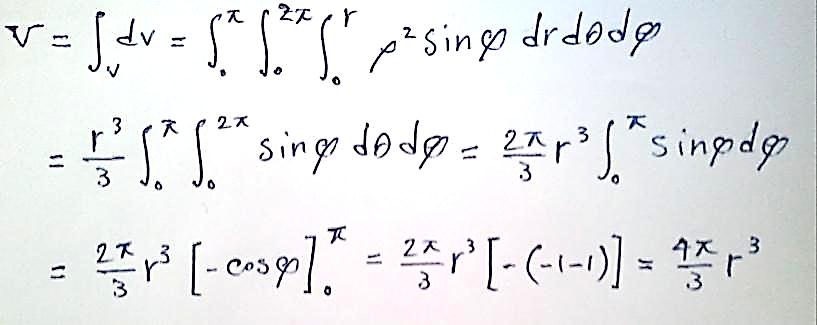 V = ∫_V dv = ∫₀^π ∫₀^2π ∫₀^r ρ² sinφ dr dθ dφ
= r³/3 ∫₀^π ∫₀^2π sinφ dθ dφ = 2π/3 r³ ∫₀^π sinφ dφ
= 2π/3 r³ [-cosφ]₀^π = 2π/3 r³ [-(-1-1)] = 4π/3 r³